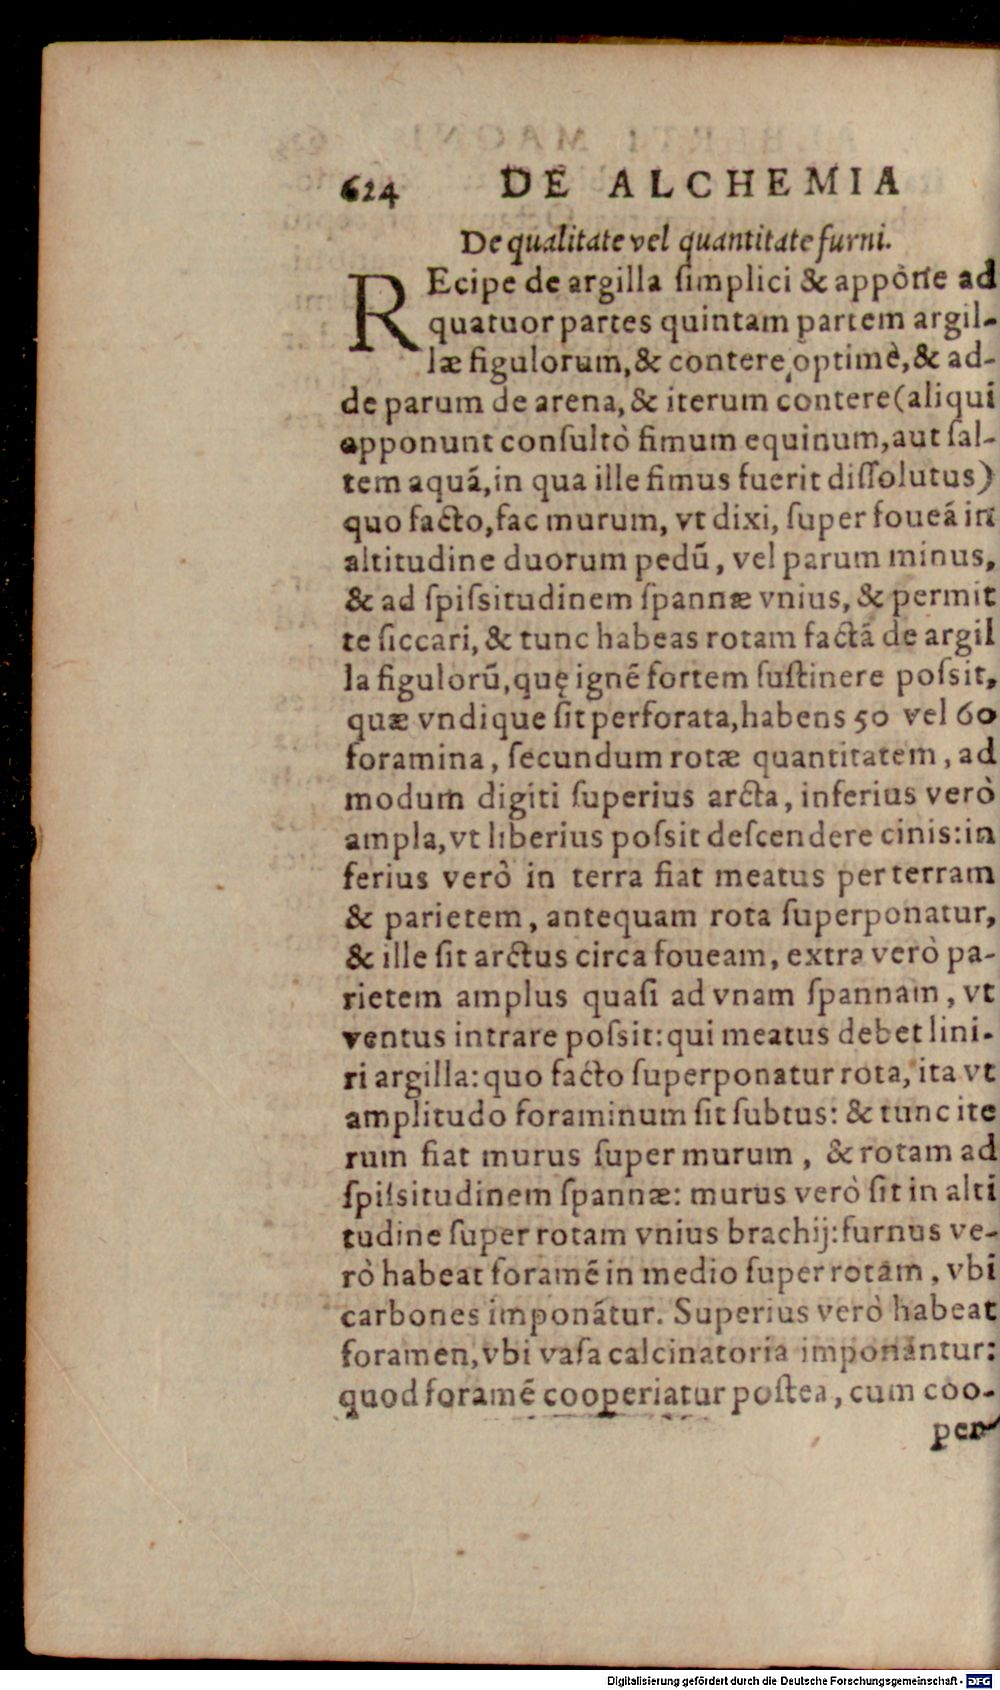 624 DE ALCHEMIA
De qualitate vel quantitate furni.
REcipe de argilla ſimplici & appone ad
quatuor partes quintam partem argil-
læ figulorum, & contere optimè, & ad-
de parum de arena, & iterum contere (aliqui
apponunt conſultò fimum equinum, aut ſal-
tem aquã, in qua ille fimus fuerit diſſolutus)
quo facto, fac murum, vt dixi, ſuper foueã in
altitudine duorum pedũ, vel parum minus,
& ad ſpiſsitudinem ſpannæ vnius, & permit
te ſiccari, & tunc habeas rotam factã de argil
la figulorũ, quę ignẽ fortem ſuſtinere poſsit,
quæ vndique ſit perforata, habens 50 vel 60
foramina, ſecundum rotæ quantitatem, ad
modum digiti ſuperius arcta, inferius verò
ampla, vt liberius poſsit deſcendere cinis: in
ferius verò in terra fiat meatus per terram
& parietem, antequam rota ſuperponatur,
& ille ſit arctus circa foueam, extra verò pa-
rietem amplus quaſi ad vnam ſpannam, vt
ventus intrare poſsit: qui meatus debet lini-
ri argilla: quo facto ſuperponatur rota, ita vt
amplitudo foraminum ſit ſubtus: & tunc ite
rum fiat murus ſuper murum, & rotam ad
ſpiſsitudinem ſpannæ: murus verò ſit in alti
tudine ſuper rotam vnius brachij: furnus ve-
rò habeat foramẽ in medio ſuper rotam, vbi
carbones imponãtur. Superius verò habeat
foramen, vbi vaſa calcinatoria imponantur:
quod foramẽ cooperiatur poſtea, cum coo-
per-
Digitalisierung gefördert durch die Deutsche Forschungsgemeinschaft - DFG